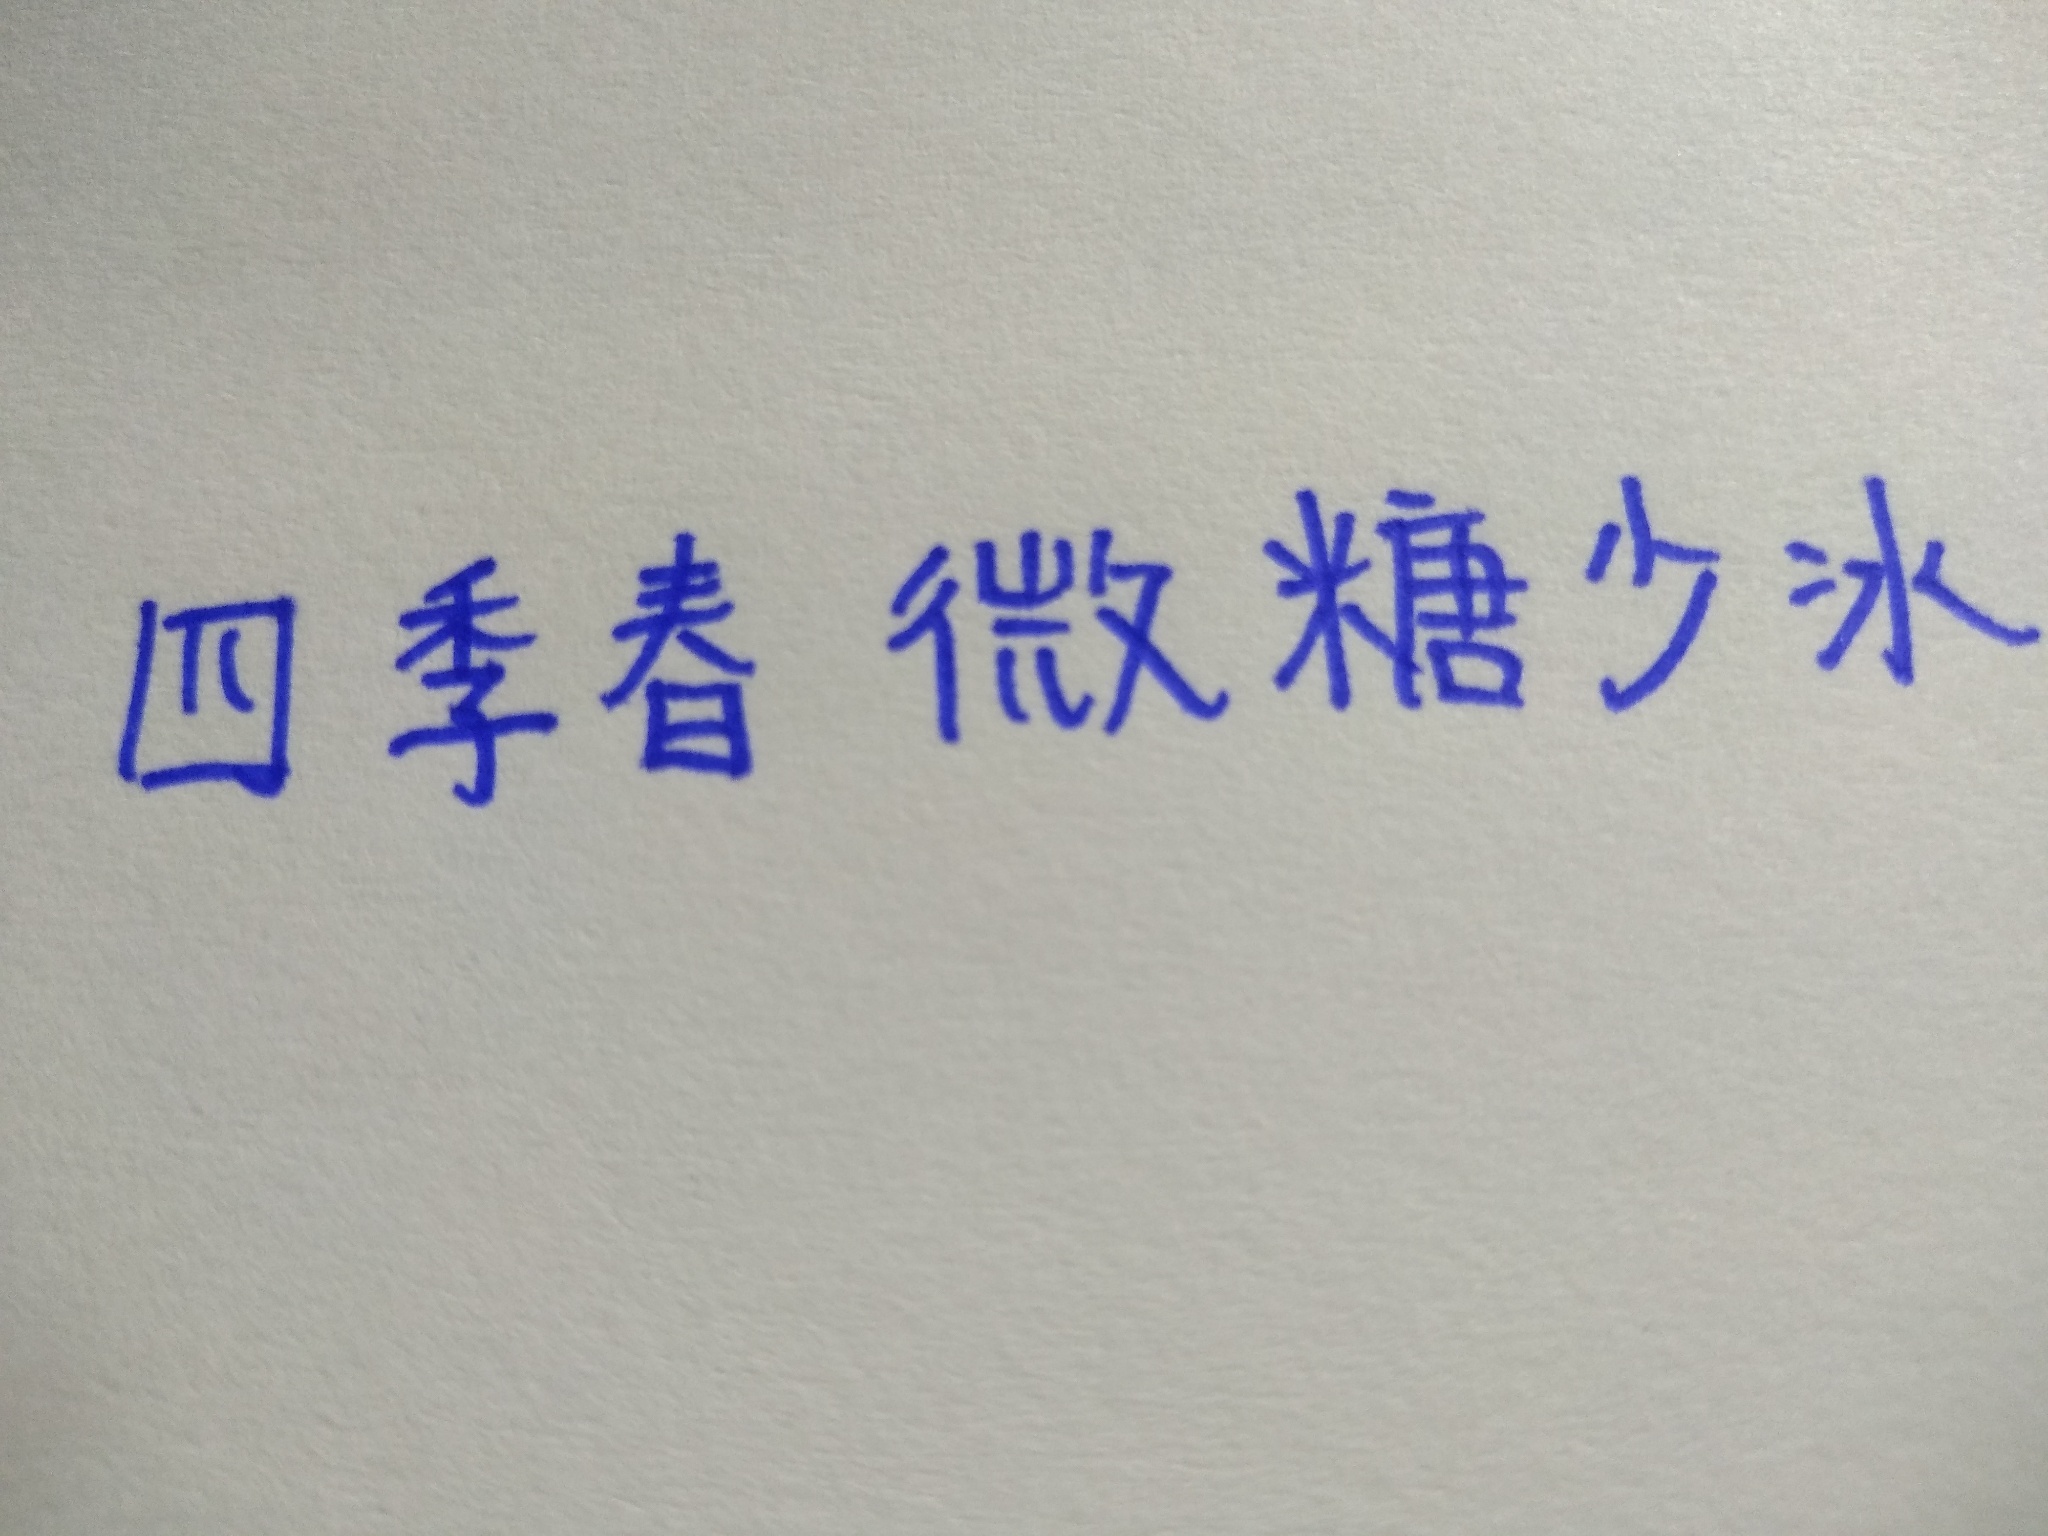 四季春 微糖少冰